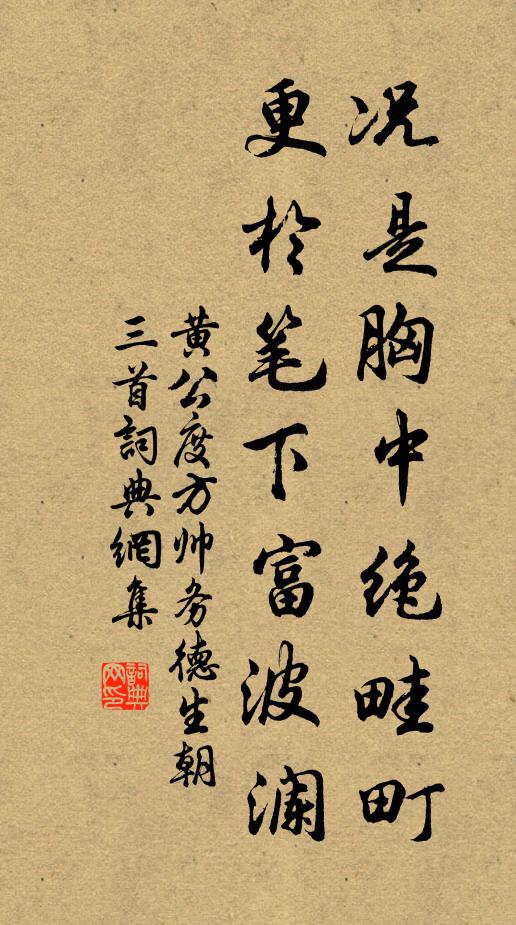 况是胸中绝畦町
更於笔下富波澜
黄公度方帅务德生朝
三首詞典網集
詞典网印